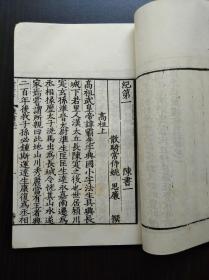 紀第一 陳書一
散騎常侍姚 思廉 撰
高祖上
高祖武皇帝諱霸先字興國小字法生吳興長
城下若里人漢太丘長陳寔之後也世居潁川
寔玄孫準晉太尉準生匡匡生達永嘉南遷為
丞相掾歷太子洗馬出為長城令悅其山水遂
家焉嘗謂所親曰此地山川秀麗當有王者興
二百年後我子孫必鍾斯運達生康復為丞相